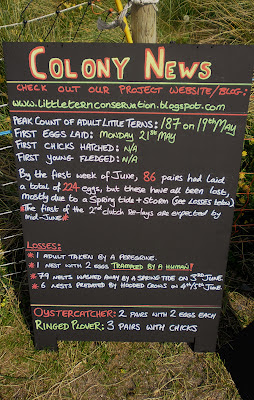 COLONY NEWS
CHECK OUT OUR PROJECT WEBSITE/BLOG:
www.littleternconservation.blogspot.com
PEAK COUNT OF ADULT LITTLE TERNS: 187 ON 19TH MAY
FIRST EGGS LAID: MONDAY 21ST MAY
FIRST CHICKS HATCHED: N/A
FIRST YOUNG FLEDGED: N/A
BY THE FIRST WEEK OF JUNE, 86 PAIRS HAD LAID
A TOTAL OF 224 EGGS, BUT THESE HAVE ALL BEEN LOST,
MOSTLY DUE TO A SPRING TIDE + STORM (SEE LOSSES BELOW)
*THE FIRST OF THE 2ND CLUTCH RE-LAYS ARE EXPECTED BY
MID-JUNE*
LOSSES:
* 1 ADULT TAKEN BY A PEREGRINE.
* 1 NEST WITH 2 EGGS TRAMPLED BY A HUMAN!
* 79 NESTS WASHED AWAY BY A SPRING TIDE ON 3RD JUNE.
* 6 NESTS PREDATED BY HOODED CROWS ON 4TH/5TH JUNE.
OYSTERCATCHER: 2 PAIRS WITH 2 EGGS EACH
RINGED PLOVER: 3 PAIRS WITH CHICKS